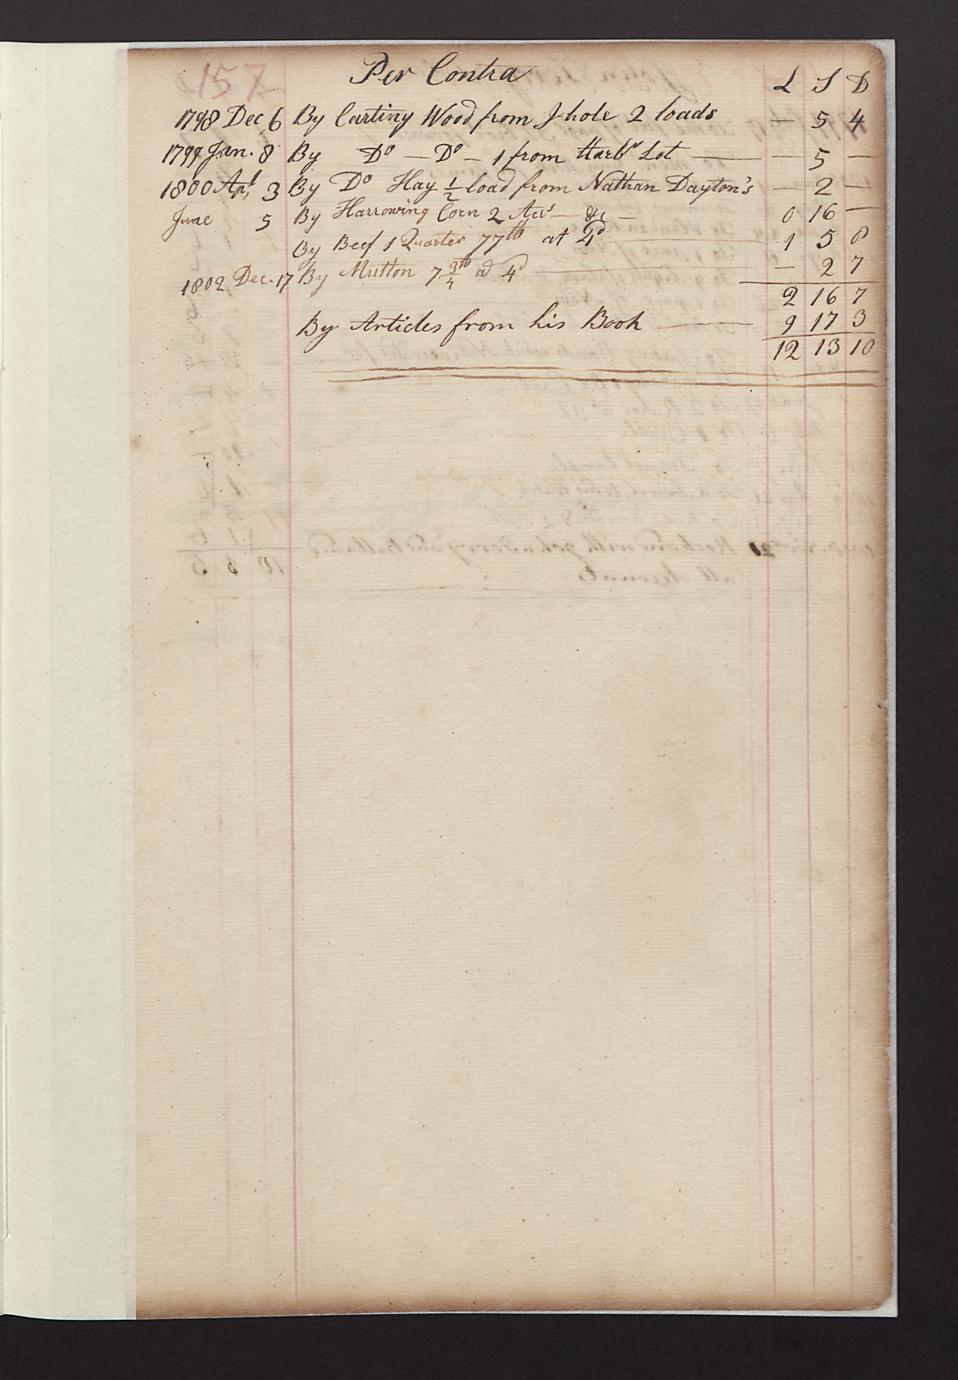 157
Per Contra
L S D
1798 Dec. 6 By Carting Wood from J-hole 2 loads — 5 4
1799 Jan. 8 By Do — Do — 1 from Harbr Lot — — 5 —
1800 Apl 3 By Do Hay ½ load from Nathan Dayton's — 2 —
June 5 By Harrowing Corn 2 Acrs — &c — 0 16 —
By Beef 1 Quarter 77lb at 4d 1 5 8
1802 Dec. 17 By Mutton 7¾lb at 4d — — 2 7
2 16 7
By Articles from his Book — 9 17 3
12 13 10